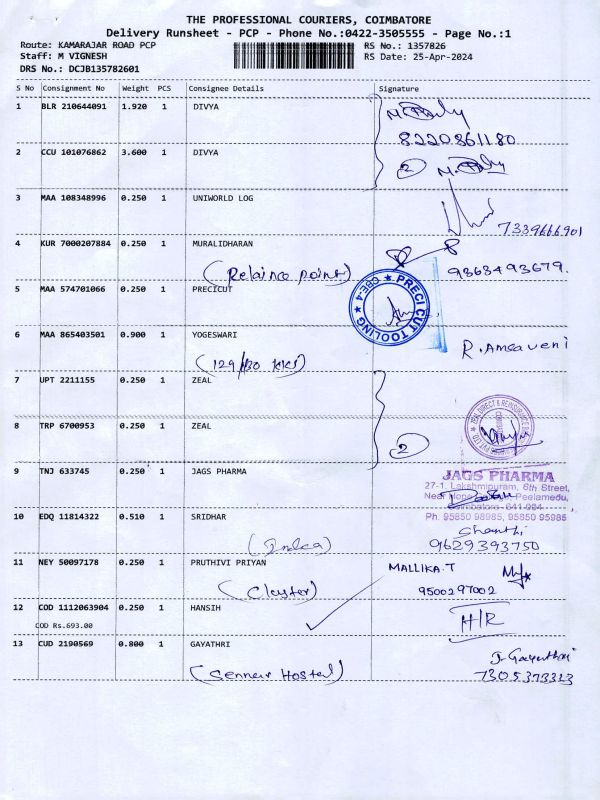 THE PROFESSIONAL COURIERS, COIMBATORE
Delivery Runsheet - PCP - Phone No.:0422-3505555 - Page No.:1
Route: KAMARAJAR ROAD PCP RS No.: 1357826
Staff: M VIGNESH RS Date: 25-Apr-2024
DRS No.: DCJB135782601
S No Consignment No Weight PCS Consignee Details Signature
1 BLR 210644091 1.920 1 DIVYA
8220861180
2 CCU 101076862 3.600 1 DIVYA
2
3 MAA 108348996 0.250 1 UNIWORLD LOG
7339666901
4 KUR 7000207884 0.250 1 MURALIDHARAN
(Relaince point) 9363493679.
5 MAA 574701066 0.250 1 PRECICUT
PRECI CUT TOOLING ★ CBE-4 ★
6 MAA 865403501 0.900 1 YOGESWARI
(129/130 KKS) R. Amsaveni
7 UPT 2211155 0.250 1 ZEAL
8 TRP 6700953 0.250 1 ZEAL
2
9 TNJ 633745 0.250 1 JAGS PHARMA
JAGS PHARMA
27-1, Lakshmipuram, 6th Street,
Near Hope Peelamedu,
Coimbatore - 641 004
Ph. 95850 98985, 95850 95985
10 EDQ 11814322 0.510 1 SRIDHAR
Shanthi
(Indea) 9629393750
11 NEY 50097178 0.250 1 PRUTHIVI PRIYAN
MALLIKA.T
(Cluster) 9500297002
12 COD 1112063904 0.250 1 HANSIH
COD Rs.693.00
H/R
13 CUD 2190569 0.800 1 GAYATHRI
J. Gayathri
(Senneir Hostel) 7305373323